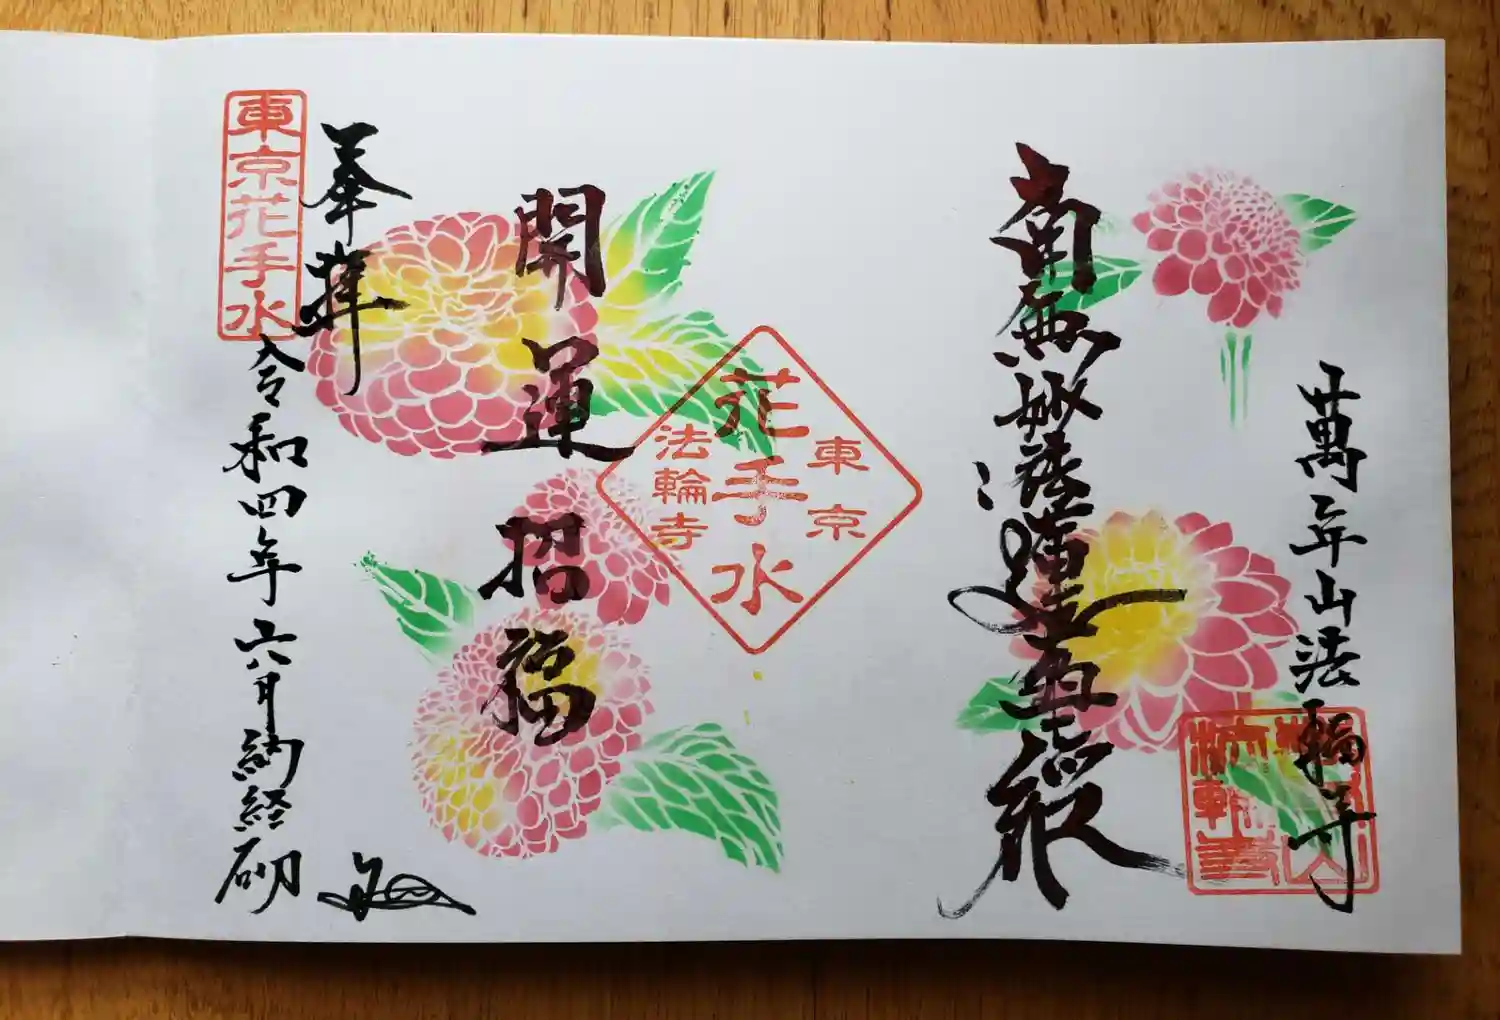 廿萬年山法輪寺
南無妙法蓮華経
花手水
東京
法輪寺
開運招福
奉拝
東京花手水
令和四年六月納経砌